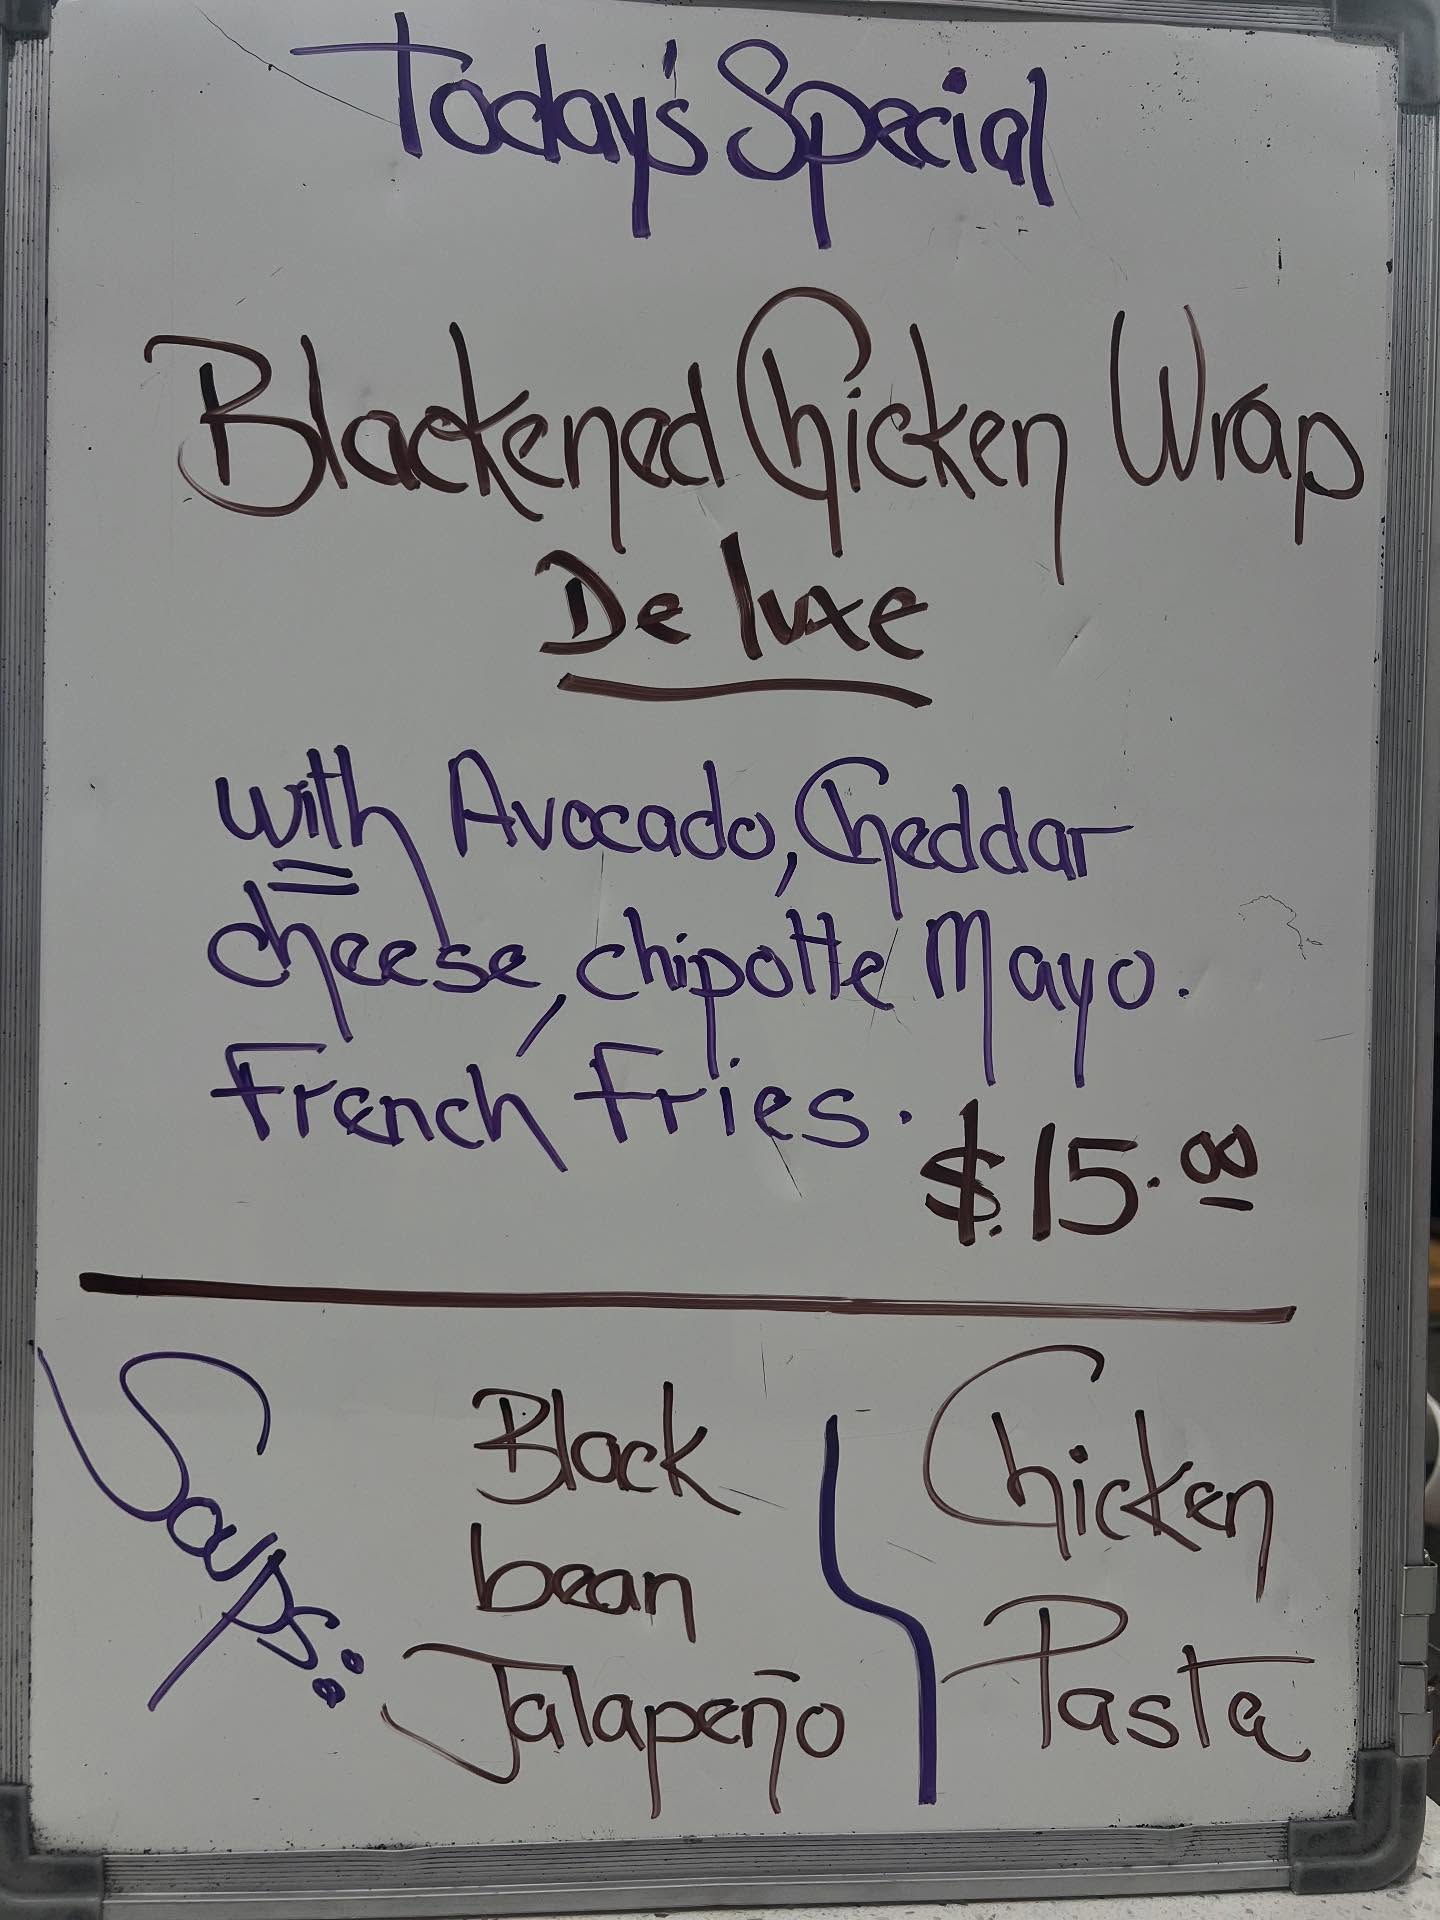 Today's Special
Blackened Chicken Wrap
De luxe
with Avocado, Cheddar
cheese, chipotte Mayo.
French Fries.
$.15.00
Soups:
Black
bean
Jalapeño
Chicken
Pasta